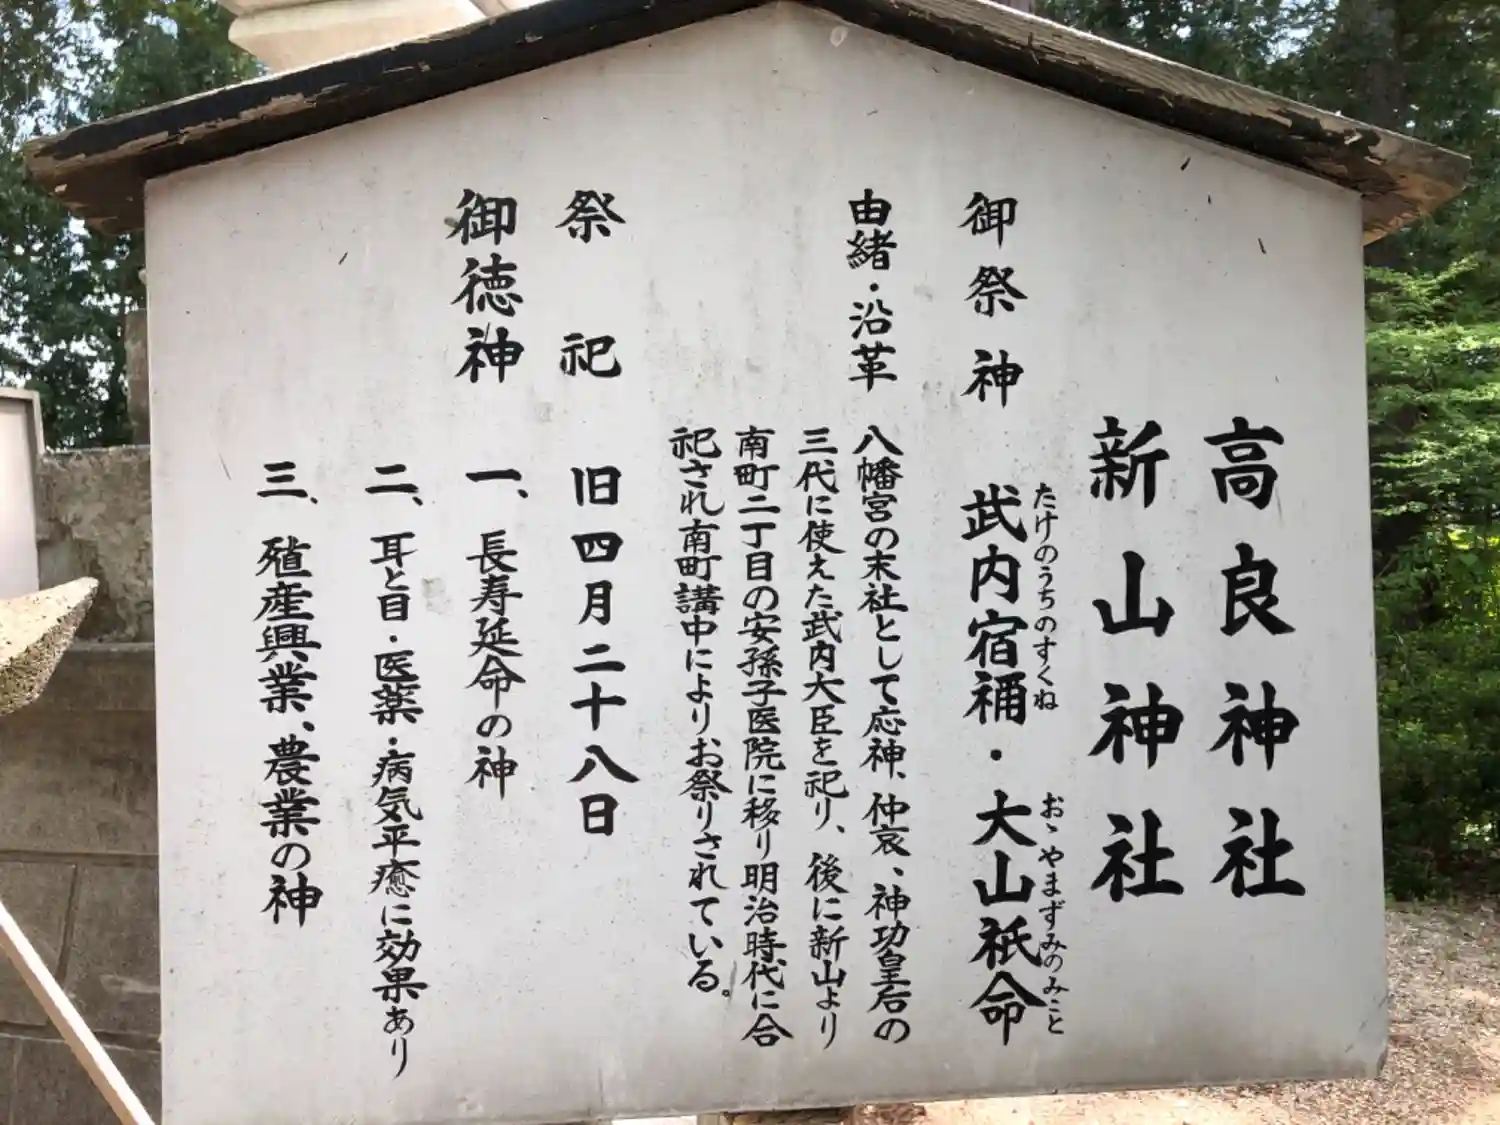 高良神社
新山神社
御祭神
武内宿禰・大山祇命
たけのうちのすくね
おゝやまずみのみこと
由緒・沿革
八幡宮の末社として応神、仲哀、神功皇后の
三代に使えた武内大臣を祀り、後に新山より
南町二丁目の安孫子医院に移り明治時代に合
祀され南町講中によりお祭りされている。
祭祀
旧四月二十八日
御徳神
一、長寿延命の神
二、耳と目・医薬・病気平癒に効果あり
三、殖産興業、農業の神